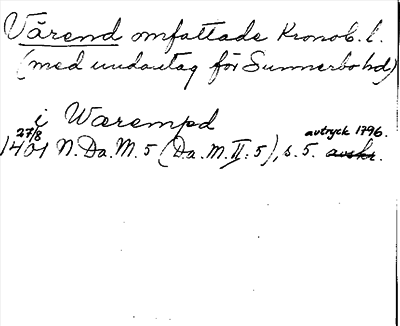 Värend omfattade Kronob. l.
(med undantag för Sunnerbo hd)
i Wærempd
27/8 avtryck 1796.
1401 N. Da. M. 5 (Da. M. II: 5), s. 5. avskr.